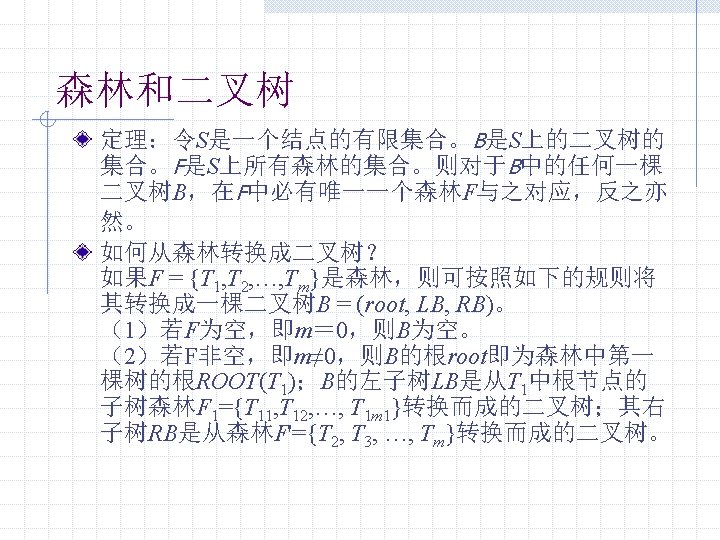 森林和二叉树
定理：令S是一个结点的有限集合。B是S上的二叉树的
集合。F是S上所有森林的集合。则对于B中的任何一棵
二叉树B，在F中必有唯一一个森林F与之对应，反之亦
然。
如何从森林转换成二叉树？
如果F = {T1, T2, …, Tm}是森林，则可按照如下的规则将
其转换成一棵二叉树B = (root, LB, RB)。
（1）若F为空，即m＝0，则B为空。
（2）若F非空，即m≠0，则B的根root即为森林中第一
棵树的根ROOT(T1)；B的左子树LB是从T1中根节点的
子树森林F1={T11, T12, …, T1m1}转换而成的二叉树；其右
子树RB是从森林F'={T2, T3, …, Tm}转换而成的二叉树。